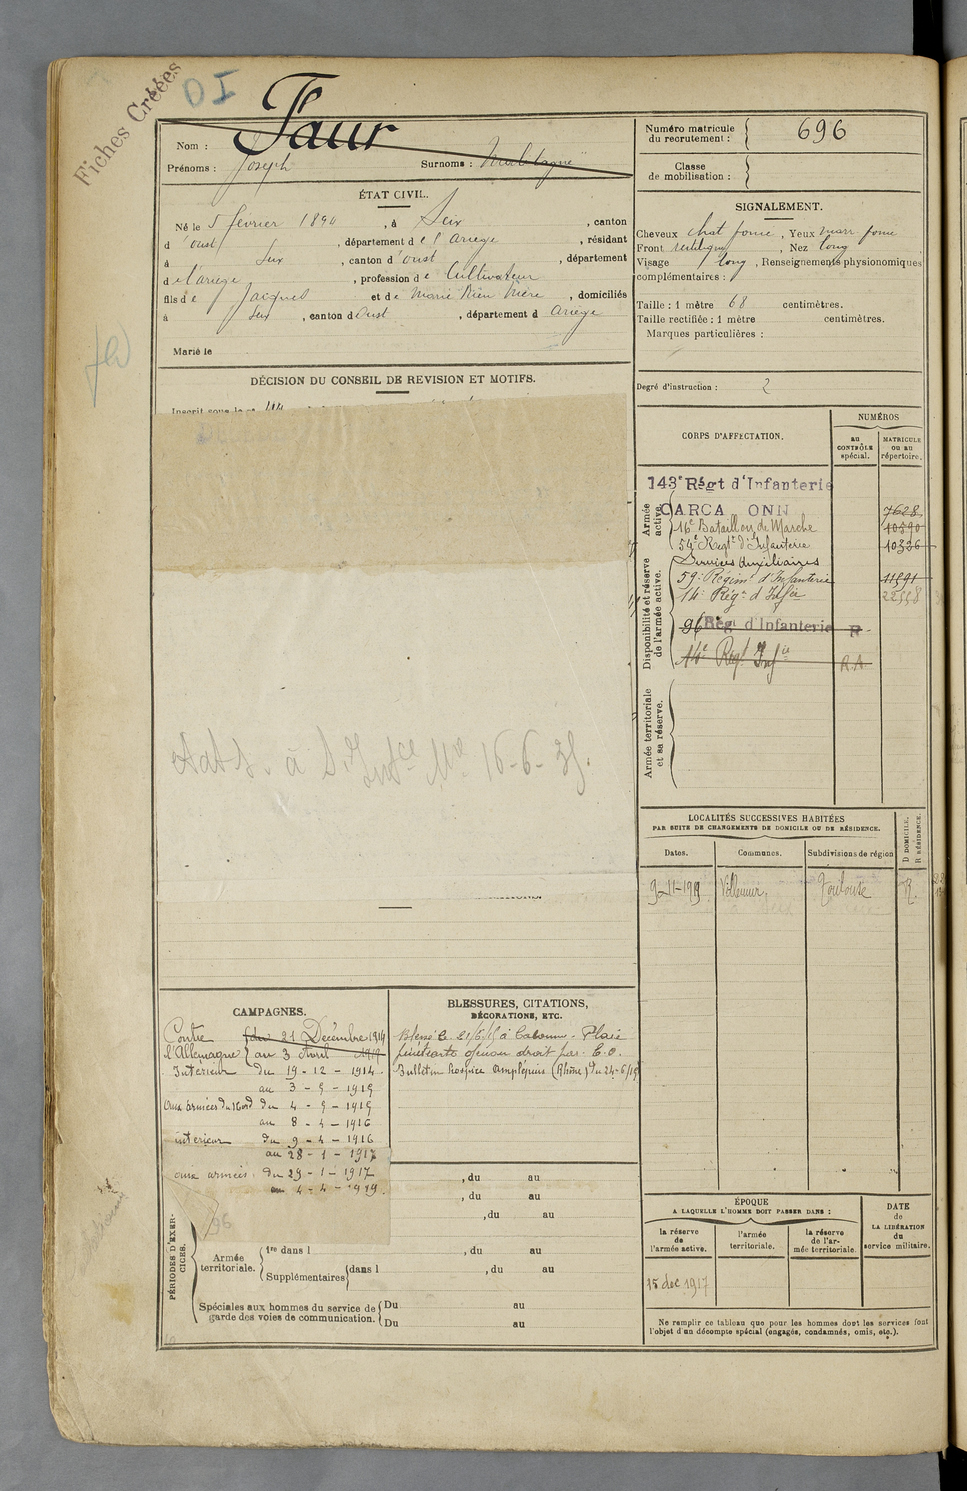 Fiches Créées
OI
Faur
Nom :
Prénoms : Joseph Surnoms :
Numéro matricule du recrutement : 696
Classe de mobilisation :
ÉTAT CIVIL.
Né le 5 février 1890, à Seix, canton
d'oust, département de l'ariege, résidant
à Seix, canton d'oust, département
de l'ariege, profession de Cultivateur
fils de Jacques et de Marie Rieu Mère, domiciliés
à Seix, canton d'Oust, département d Ariege
Marié le
SIGNALEMENT.
Cheveux chat foncé, Yeux marr. foncé
Front rectiligne, Nez long
Visage long, Renseignements physionomiques
complémentaires :
Taille : 1 mètre 68 centimètres.
Taille rectifiée : 1 mètre centimètres.
Marques particulières :
Degré d'instruction : 2
DÉCISION DU CONSEIL DE REVISION ET MOTIFS.
Inscrit sous le n° 44
à 16-6-
CORPS D'AFFECTATION.
NUMÉROS
au CONTRÔLE spécial.
MATRICULE ou au répertoire.
Armée active.
143e Régt d'Infanterie
CARCA ONN 7628
16e Bataillon de Marche 10590
54e Regt d'Infanterie 10336
Disponibilité et réserve de l'armée active.
Services Auxiliaires
59e Régimt d'Infanterie 11591
14e Régt d'Infie 22558
96 Régt d'Infanterie R
14e Regt Infie R.A
Armée territoriale et sa réserve.
LOCALITÉS SUCCESSIVES HABITÉES
PAR SUITE DE CHANGEMENTS DE DOMICILE OU DE RÉSIDENCE.
Dates. Communes. Subdivisions de région D DOMICILE. R RÉSIDENCE.
9-11-1919 Villemur. Toulouse R.
CAMPAGNES.
Contre l'Allemagne du 21 Décembre 1914
au 3 Avril 1919
Intérieur du 19-12-1914
au 3-5-1915
aux armées du Nord du 4-5-1915
au 8-4-1916
intérieur du 9-4-1916
au 28-1-1917
aux armées du 29-1-1917
au 4-4-1919.
96
BLESSURES, CITATIONS,
DÉCORATIONS, ETC.
Blessé le 21/6/15 à Calonne. Plaie
pénétrante genou droit par E.O.
Bulletin hospice Amplepuis (Rhône) du 24-6/15
PÉRIODES D'EXERCICES.
, du au
, du au
, du au
Armée territoriale. 1re dans l , du au
Supplémentaires dans l , du au
Spéciales aux hommes du service de garde des voies de communication. Du au
Du au
ÉPOQUE
A LAQUELLE L'HOMME DOIT PASSER DANS :
la réserve de l'armée active.
l'armée territoriale.
la réserve de l'armée territoriale.
DATE de LA LIBÉRATION du service militaire.
15 dec 1917
Ne remplir ce tableau que pour les hommes dont les services font
l'objet d'un décompte spécial (engagés, condamnés, omis, etc.).